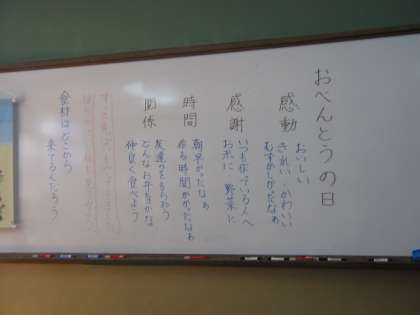 おべんとうの日
感動
おいしい
きれい かわいい
むずかしかったなぁ
感謝
いつも作っている人へ
お米に 野菜に
時間
朝早かったなぁ
作る時間かかったなぁ
関係
友達のをもらおう
どんなお弁当かな
仲良く食べよう
食材はどこから
来てるんだろう?